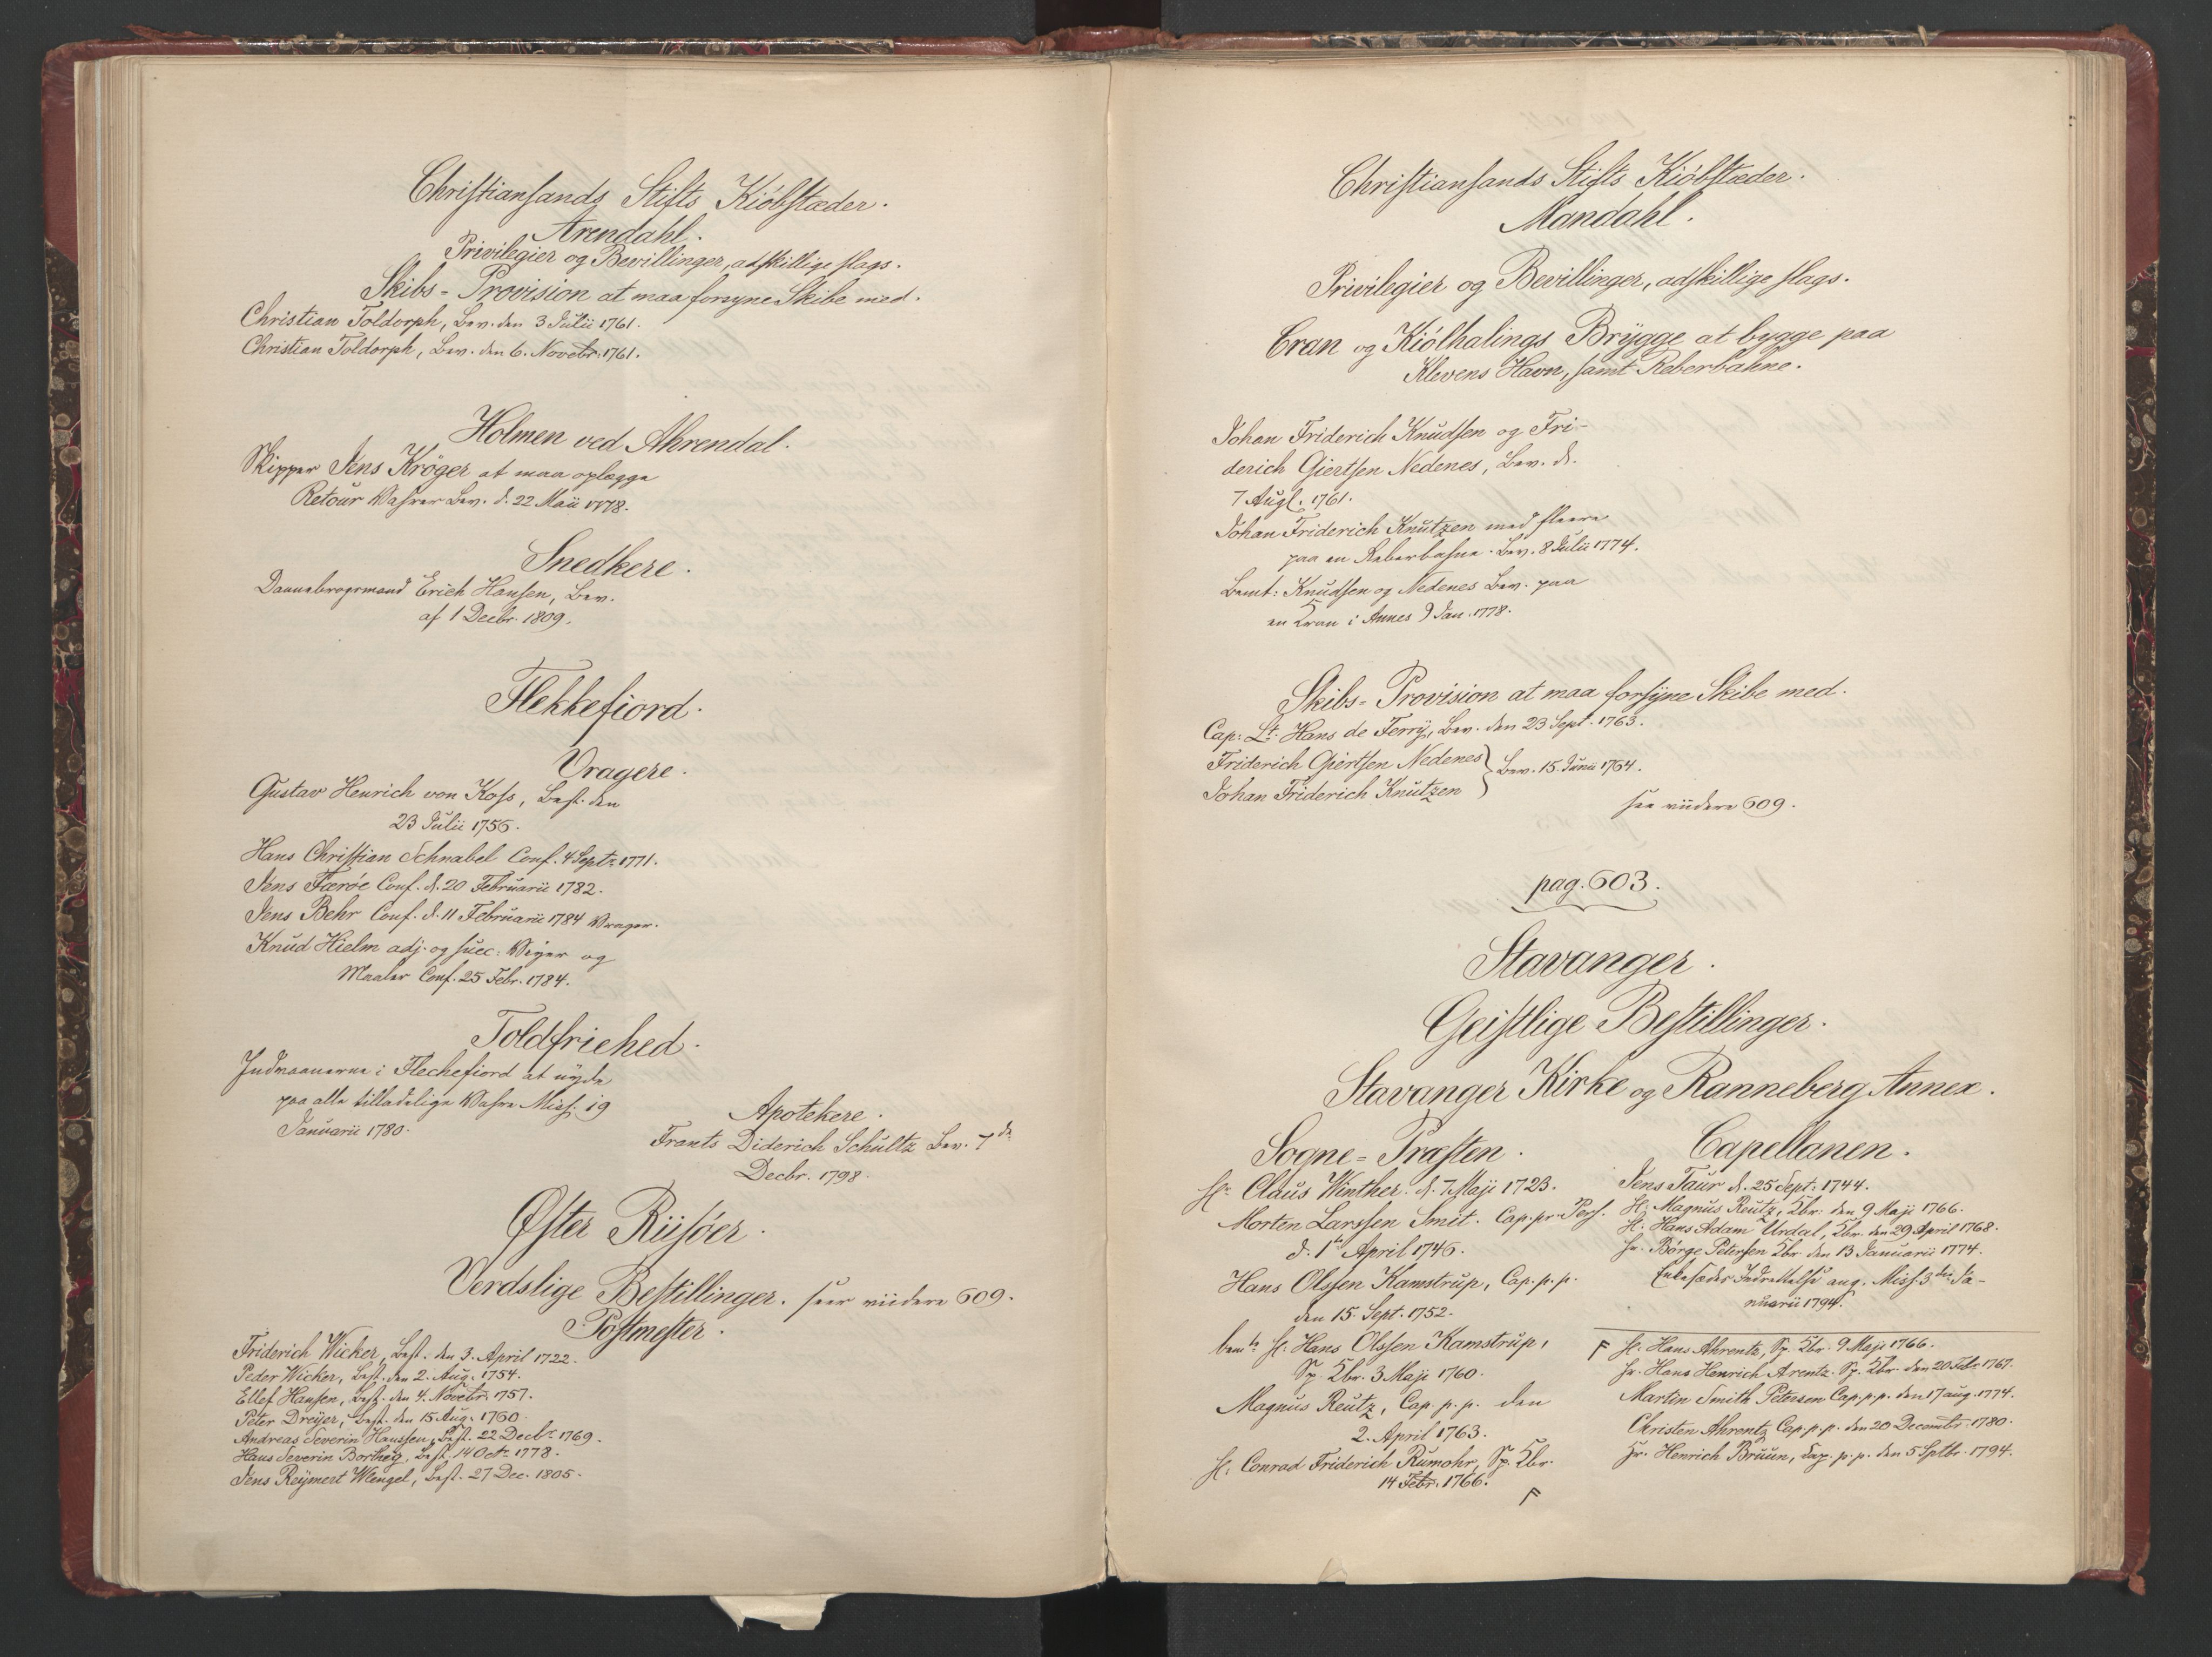 Christiansands Stifts Kiöbstæder.
Arendahl.
Privilegier og Bevillinger, adskillige slags.
Skibs-Provision at maa forsyne Skibe med.
Christian Toldorph, Bev. den 3 Julii 1761.
Christian Toldorph, Bev. den 6. Novebr. 1761.
Holmen ved Ahrendal.
Skipper Jens Kröger at maa oplægge
Retour Wahrer Bev. d. 22 Maii 1778.
Snedkere.
Dannebrogsmand Erich Hansen, Bev.
af 1 Decbr. 1809.
Flekkefiord.
Vragere.
Gustav Henrich von Koss, Best. den
23 Julii 1756.
Hans Christian Schnabel Conf. 4 Septr. 1771.
Jens Færöe Conf. d. 20 Februarii 1782.
Jens Behr Conf. d. 11 Februarii 1784 Wrager.
Knud Hielm adj. og succ: Weyer og
Maaler Conf. 25 Febr. 1784.
Toldfriehed.
Indvaanerne i Flechefiord at nyde
paa alle tilladelige Wahre Miss. 19
Januarii 1780.
Apotekere.
Frants Diderich Schultz Bev. 7de
Decbr. 1798.
Øster Riisöer.
Verdslige Bestillinger. seer viidere 609.
Postmester.
Friderich Wicker, Best. den 3. April 1722.
Peder Wicker, Best. den 2. Aug. 1754.
Ellef Hansen, Best. den 4. Novebr. 1757.
Peter Dreyer, Best. den 15 Aug. 1760.
Andreas Severin Hanssen, Best. 22 Decbr. 1769.
Hans Severin Bortheg, Best. 14 Octr. 1778.
Jens Reymert Wengel, Best. 27 Dec. 1805.
Christiansands Stifts Kiöbstæder.
Mandahl.
Privilegier og Bevillinger, adskillige slags.
Cran og Kiölhalings Brygge at bygge paa
Klevens Havn, samt Reberbahne.
Johan Friderich Knudsen og Fri-
derich Giertsen Nedenes, Bev. d.
7 Augl. 1761.
Johan Friderich Knutzen med fleere
paa en Reberbahne. Bev. 8 Julii 1774.
Bemt: Knudsen og Nedenes Bev. paa
en Cran i Annes 9 Jan. 1778.
Skibs-Provision at maa forsyne Skibe med.
Cap: Lt. Hans de Ferry, Bev. den 23 Sept. 1763.
Friderich Giertsen Nedenes
Johan Friderich Knutzen } Bev. 15. Junii 1764.
see viidere 609.
pag. 603.
Stavanger.
Geistlige Bestillinger.
Stavanger Kirke og Ranneberg Annex.
Sogne-Præsten.
Hr. Claus Winther. d. 7 Maji 1723.
Morten Larssen Smit. Cap. pr. Pers.
d. 1te April 1746.
Hans Olssen Kamstrup, Cap. p. p.
den 15. Sept. 1752.
bemte H: Hans Olssen Kamstrup,
Sp. Kbr. 3 Maji 1760.
Magnus Reutz, Cap. p. p. den
2. April 1763.
H: Conrad Friderich Rumohr, Sp. Kbr.
14 Febr. 1766.
F
Capellanen.
Jens Taur d. 25 Sept: 1744.
H: Magnus Reutz, Kbr: den 9 Maji 1766.
H: Hans Adam Urdal, Kbr. den 29 April 1768.
Hr. Börge Petersen Kbr. den 13 Januarii 1774.
Enkesædes Indrettelse ang. Miss. 3die Ja-
nuarii 1794.
F H: Hans Ahrentz, Sp. Kbr. 9 Maji 1766.
Hr. Hans Henrich Arentz. Sp. Kbr. den 20 Febr. 1767.
Martin Smith Petersen Cap. p. p. den 17 aug. 1774.
Christen Ahrentz Cap. p. p. den 20 Decembr. 1780.
Hr. Henrich Bruun, Cap. p. p. den 5 Sptbr. 1794.